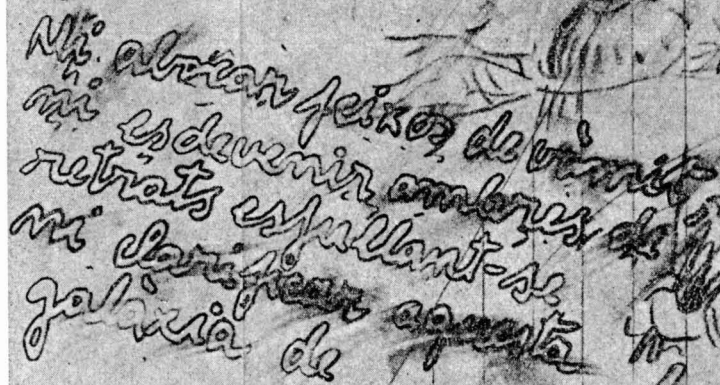 Ni abocar feixos de vímet
ni esdevenir ombres de
retrats esfullant-se
ni clarificar aquesta
galàxia de